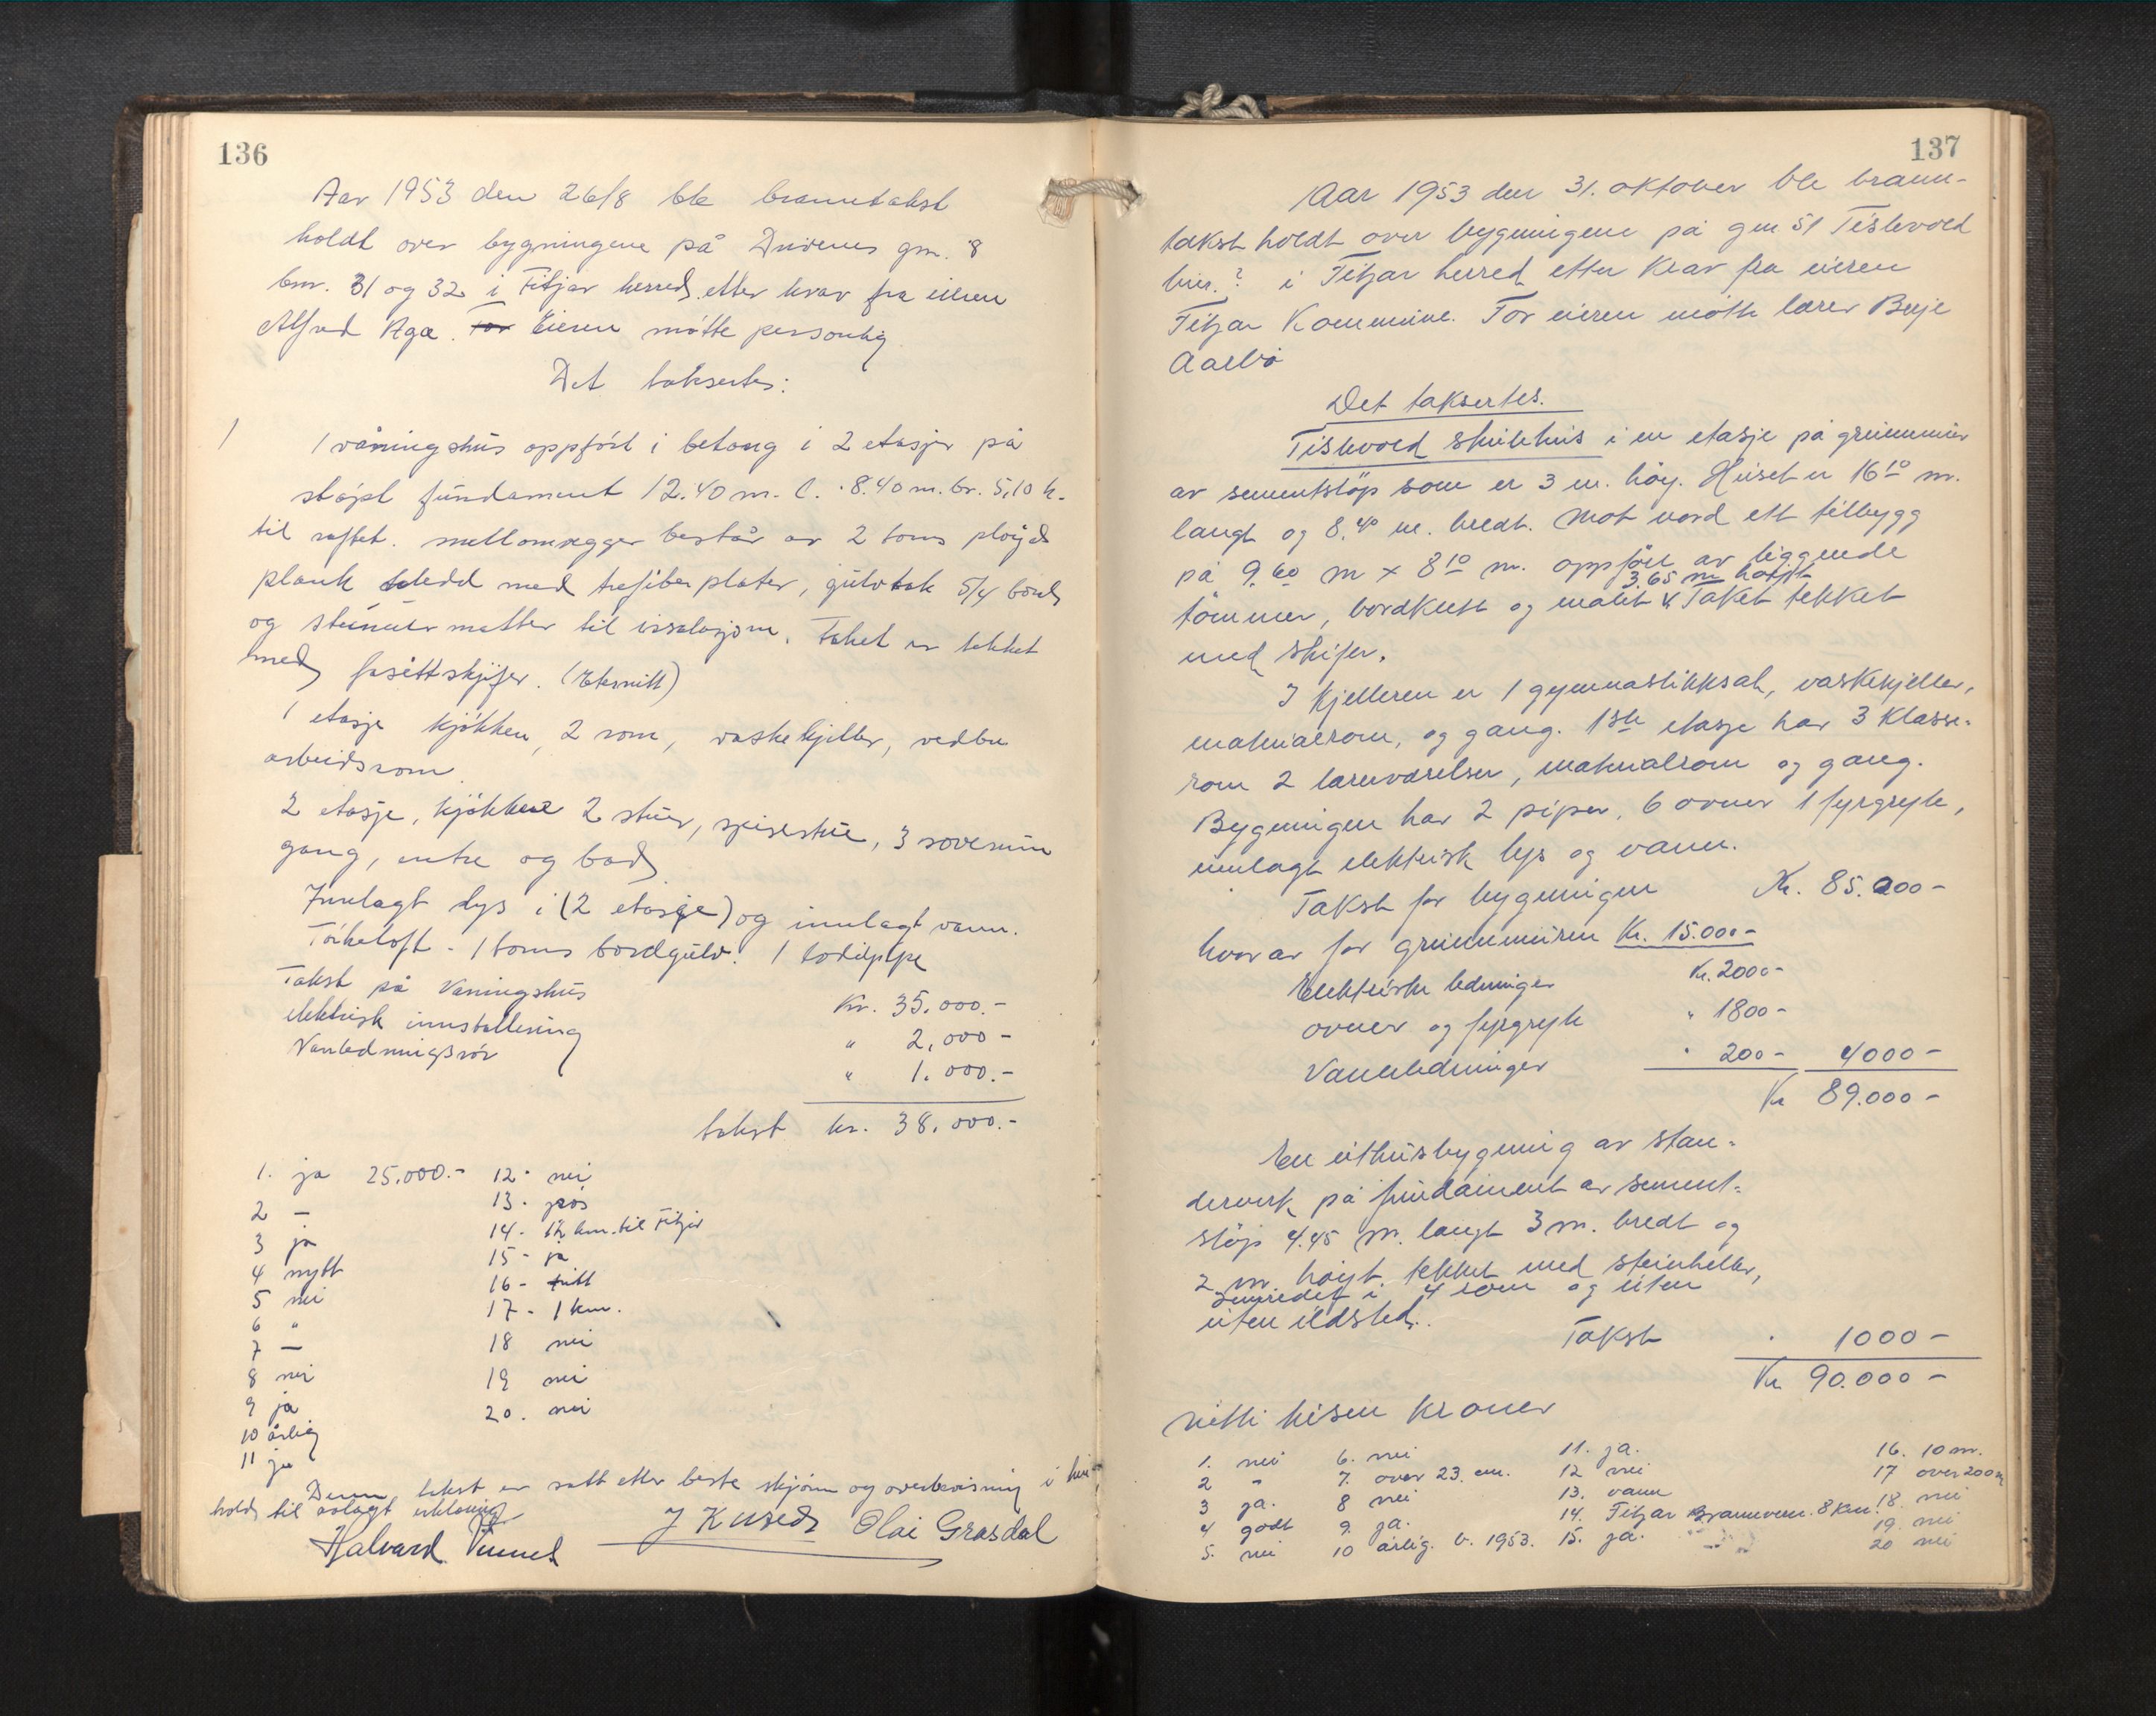 136
Aar 1953 den 26/8 ble branntakst
holdt over bygningene på Drivenes gnr. 8
bnr. 31 og 32 i Fitjar herred etter krav fra eieren
Alfred Aga. For Eieren møtte personlig
Det taksertes:
1 1 våningshus oppført i betong i 2 etasjer på
støpt fundament 12.40 m. l. 8.40 m. br. 5,10 h.
til raftet. mellomvegger består av 2 toms pløyd
plank kledd med trefiberplater, gulv tak 5/4 bord
og steinull matter til issolasjon. Taket er tekket
med fasettskjifer. (Eternitt)
1 etasje kjøkken, 2 rom, vaskekjeller, vedbu
arbeidsrom.
2 etasje, kjøkken 2 stuer, spisestue, 3 soverum
gang, entre og bad
Innlagt lys i (2 etasje) og innlagt vann.
Tørkeloft - 1 toms bordgulv. 1 pipe
Takst på Vaningshus Kr. 35.000.-
elektrisk innstallering " 2,000 -
Vanledningsrör " 1.000.-
takst kr. 38.000.-
1. ja 25.000.- 12 - nei
2 — 13 -
3 ja 14 - 12 km. til Fitjar
4 nytt 15 - ja
5 nei 16 -
6 " 17 - 1 km.
7 — 18 nei
8 nei 19 nei
9 ja 20. nei
10 årlig
11 ja
Denne takst er satt etter beste skjønn og overbevisning i hen-
hold til avlagt erklæring
Halvard J Olai Grasdal
137
Aar 1953 den 31. oktober ble brann-
takst holdt over bygningene på gnr 51 Tislevold
bnr. ? i Fitjar herred etter Krav fra eieren
Fitjar Kommune. For eieren møtte lærer Børje
Aarbø
Det taksertes.
Tislevold skulehus i en etasje på grunnmur
av sementstöp som er 3 m. høy. Huset er 16 10 m.
langt og 8.40 m. bredt. Mot nord ett tilbygg
på 9.60 m x 8 10 m. oppført av liggende
3.65 m høyt
tömmer, bordkledt og malt Taket tekket
med skifer.
I kjelleren er 1 gymnastikksal, vaskekjeller,
materialrom, og gang. 1ste etasje har 3 Klasse-
rom 2 lærerværelser, materialrom og gang.
Bygningen har 2 piper, 6 ovner 1 fyrgryte,
innlagt elektrisk lys og vann.
Takst for bygningen Kr. 85.000 -
hvorav for grunnmuren Kr. 15.000 -
Elektriske ledninger Kr. 2000 -
ovner og fyrgryte " 1800 -
Vannledninger " 200 - 4000 -
Kr 89.000 -
En uthusbygning av stan-
derverk på fundament av sement-
stöp 4.45 m. langt 3 m. bredt og
2 m. høyt. tekket med steinheller,
innredet i 4 rom og uten
uten ildsted.
Takst . 1000 -
Kr 90.000 -
nitti tusen kroner
1. nei 6. nei 11. ja. 16. 10 m.
2 " 7. over 23. cm. 12 nei 17 over 200 m
3 ja. 8 nei 13. vann 18. nei
4 godt 9. ja. 14. Fitjar Brannvern. 8 km. 19. nei
5. nei 10 årlig. b. 1953. 15. ja. 20 nei